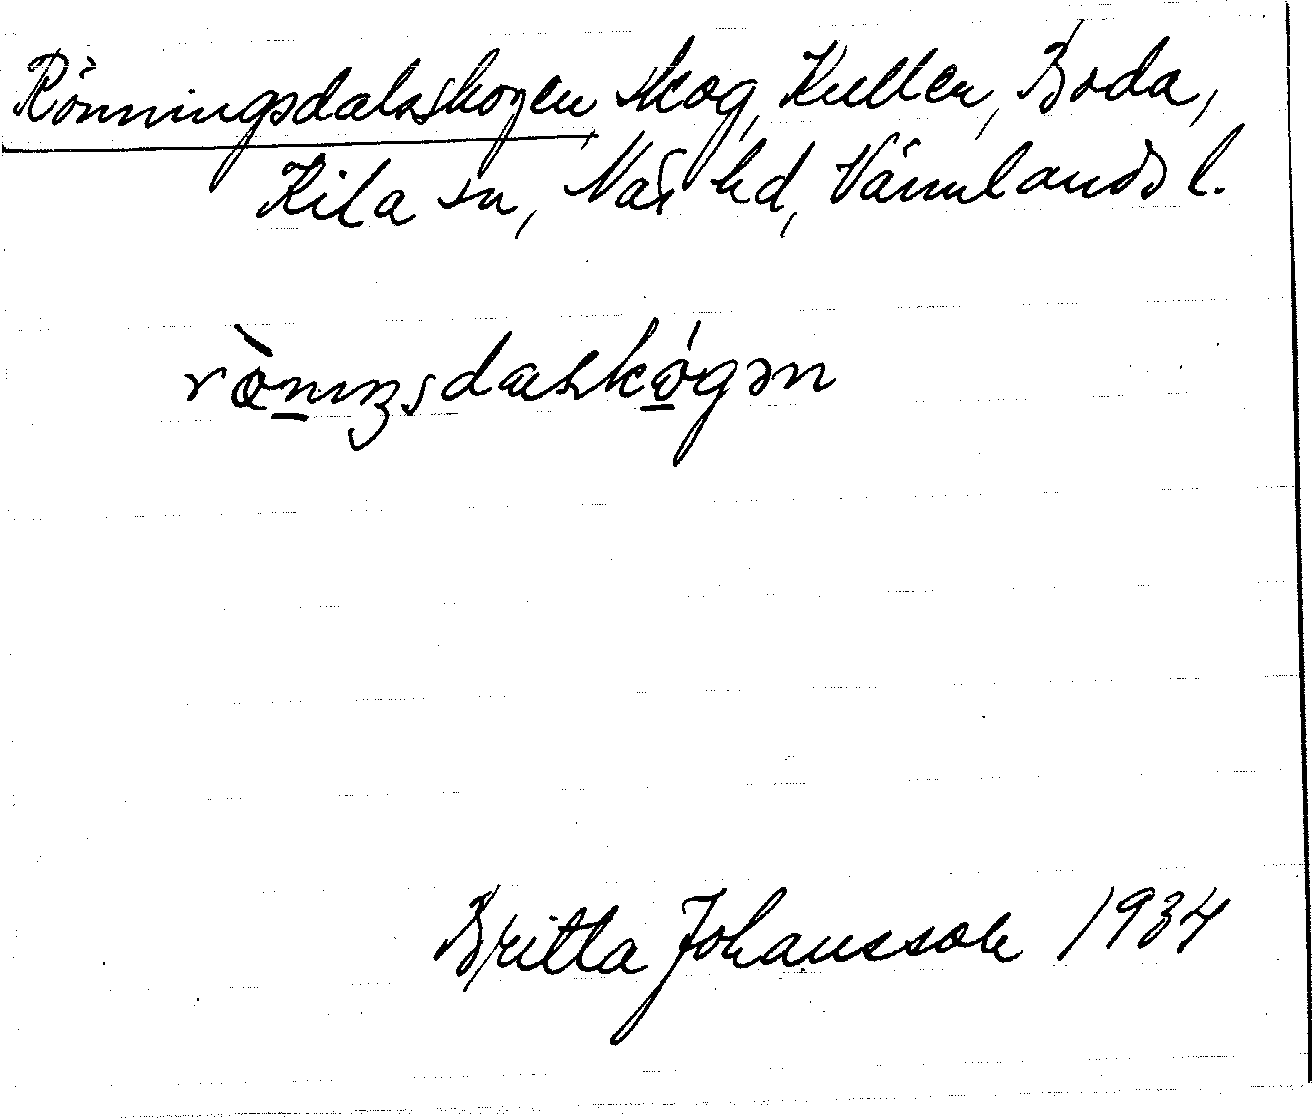 Rönningsdalsskogen skog, Kullen, Boda,
Kila sn, Näs hd, Värmlands l.
rònıŋsdaskógən
Britta Johansson 1934